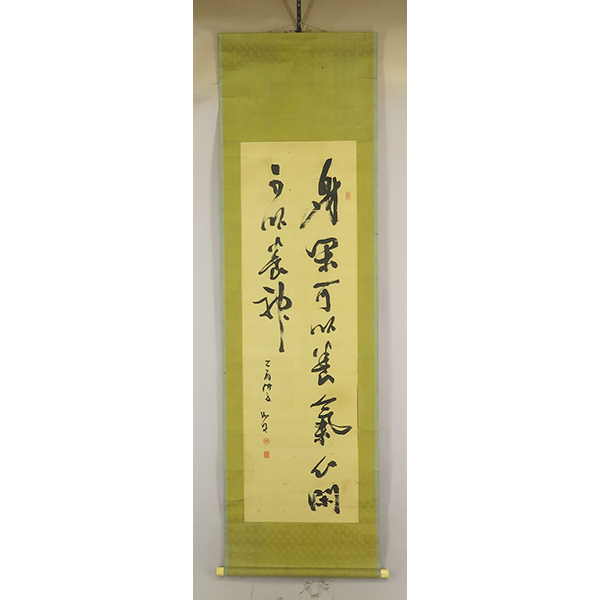 身閑可以養氣心閑
可以養神